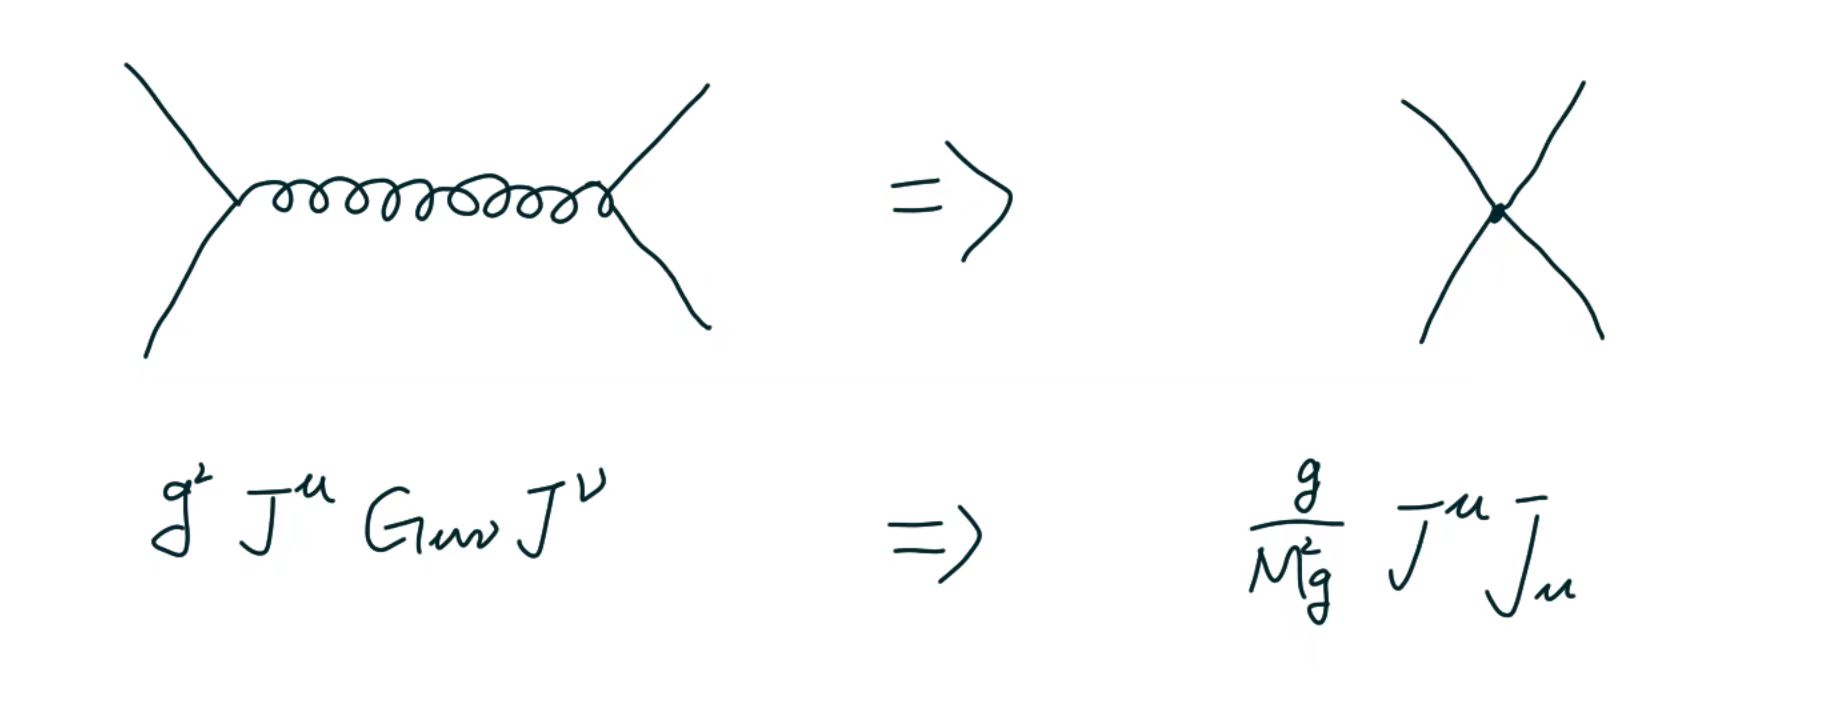 ⇒
g² J^μ G_μν J^ν ⇒ g/M_g² J^μ J_μ